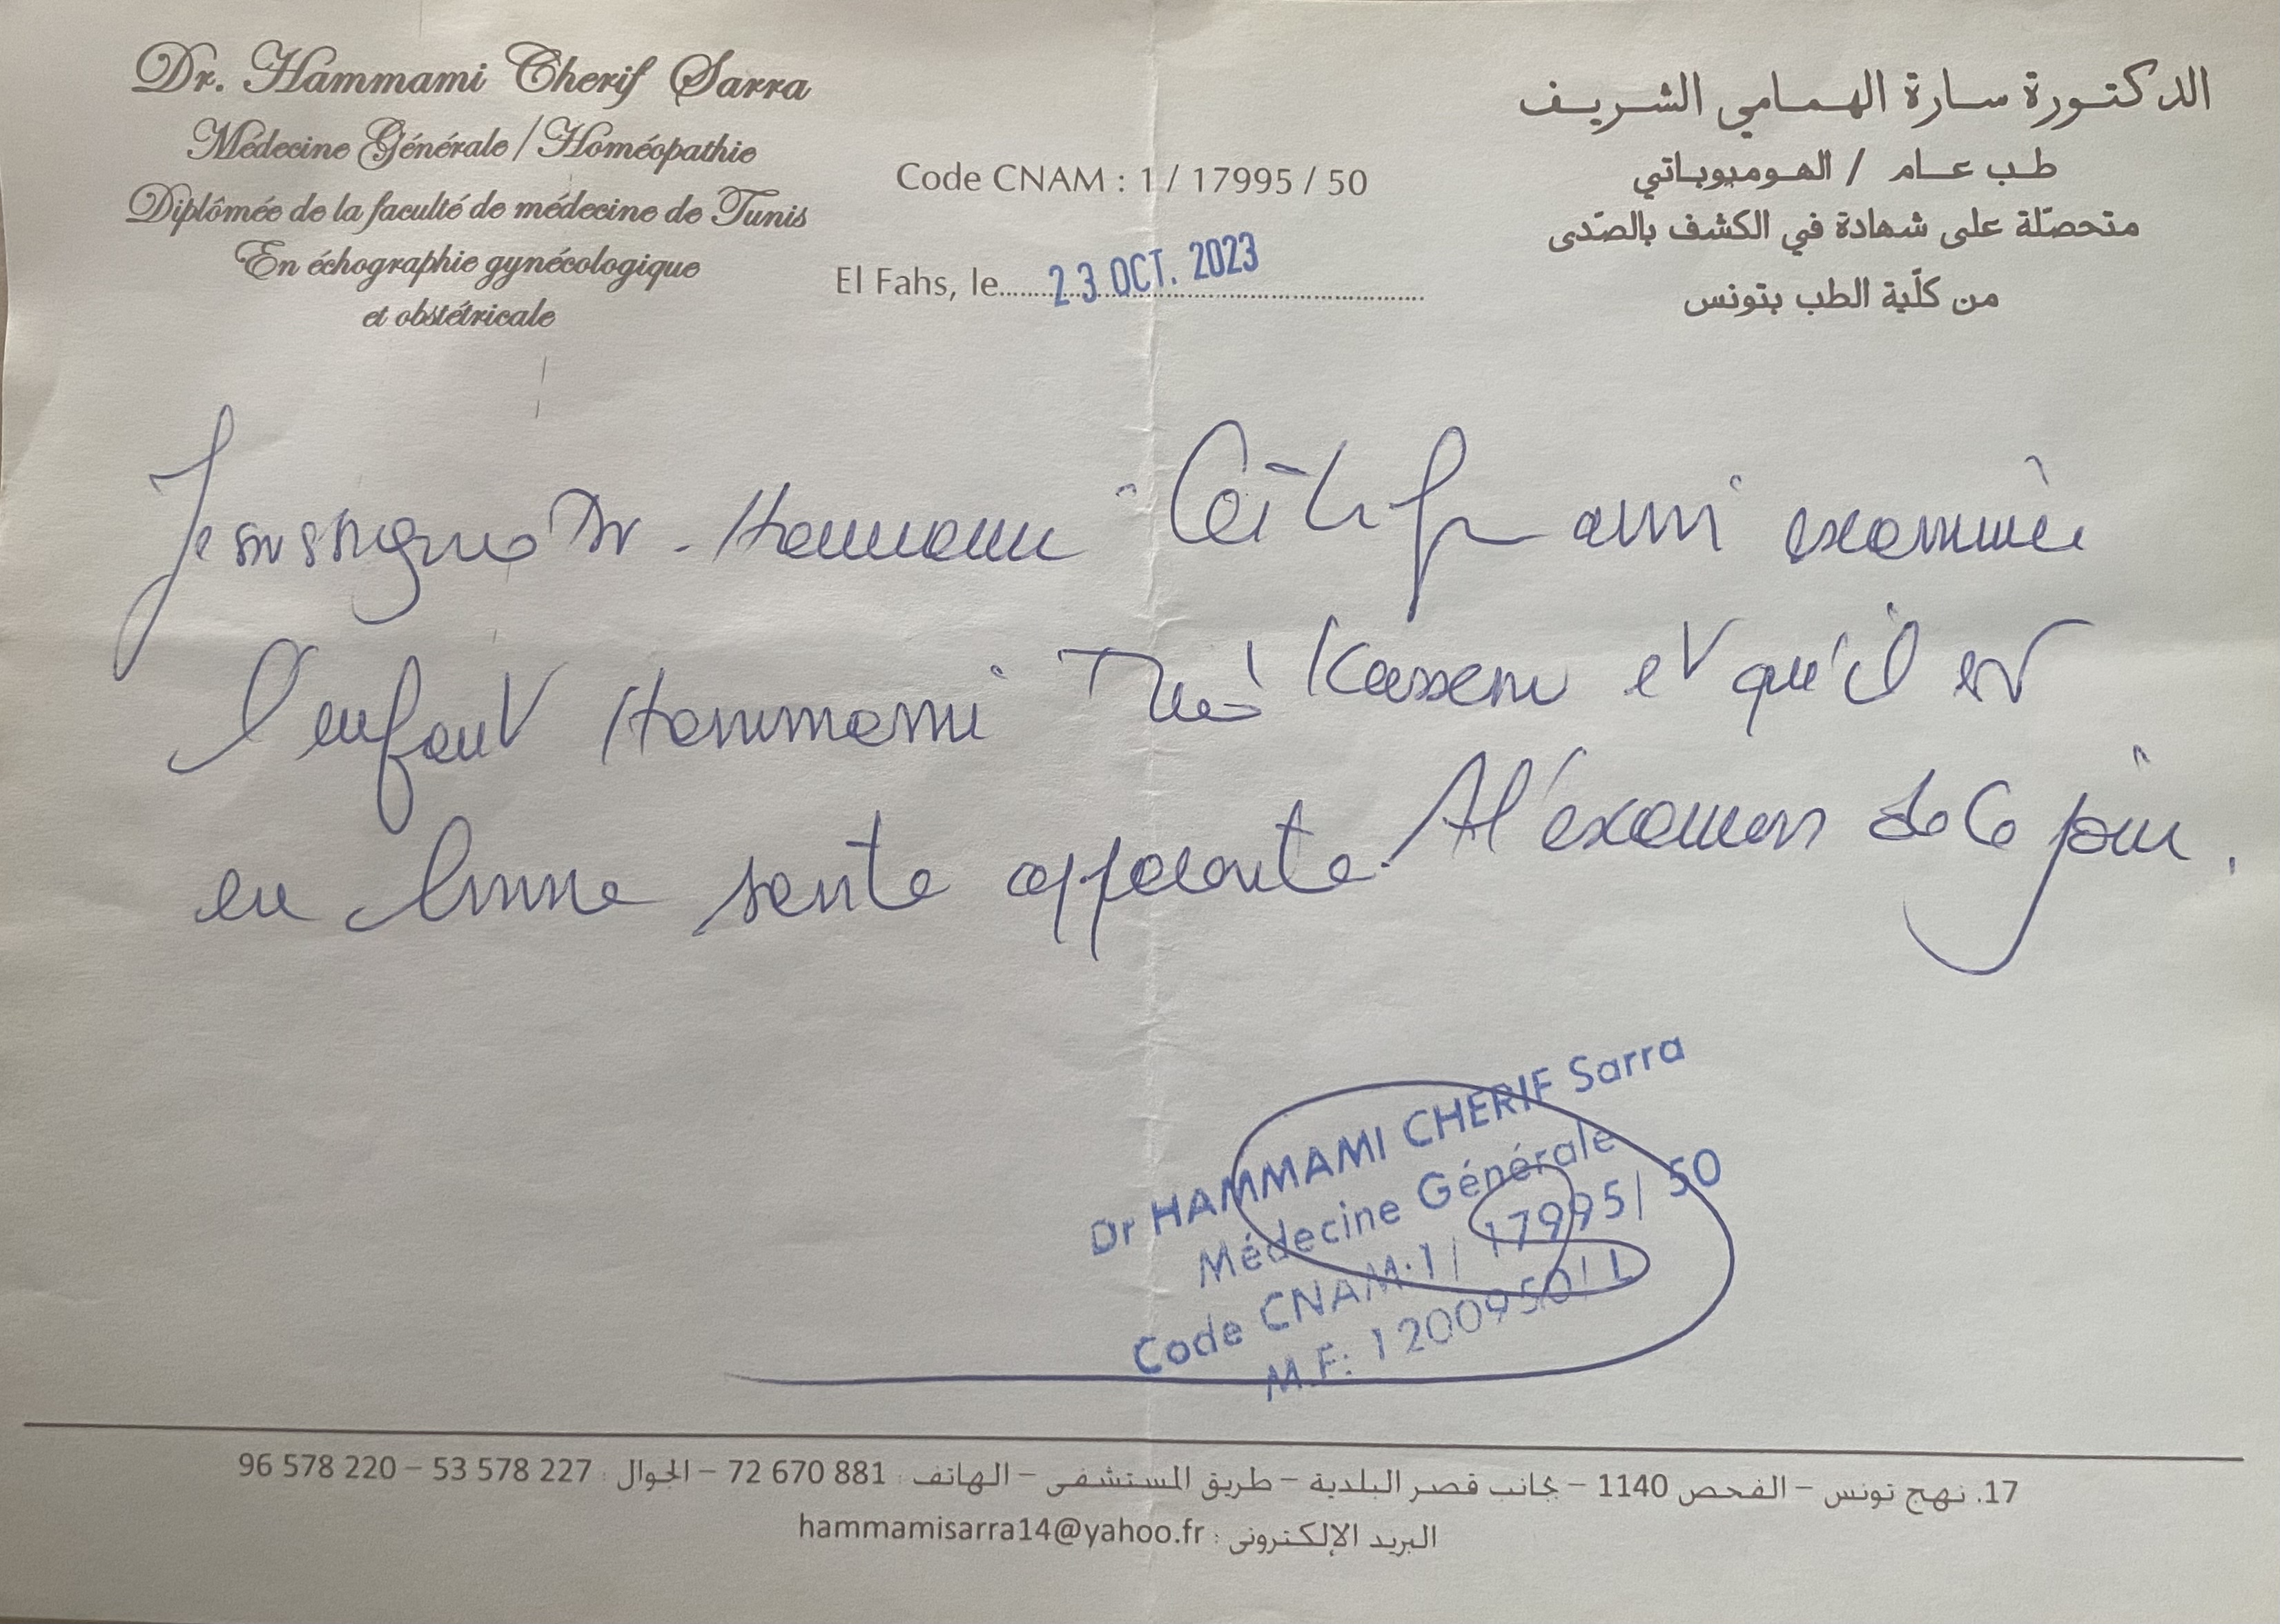 Dr. Hammami Cherif Sarra
Médecine Générale / Homéopathie
Diplômée de la faculté de médecine de Tunis
En échographie gynécologique
et obstétricale
Code CNAM : 1 / 17995 / 50
El Fahs, le 23 OCT. 2023
الدكتورة سارة الهمامي الشريف
طب عام / الهوميوباتي
متحصّلة على شهادة في الكشف بالصّدى
من كلّية الطب بتونس
Je soussigné Dr. Hammami examiné
l'enfant Hammami Kassem et qu'il est
en bonne santé apparente A l'examen de ce jour.
Dr HAMMAMI CHERIF Sarra
Médecine Générale
Code CNAM:1/ 17995/ 50
M.F: 1200950/ L
17. نهج تونس – الفحص 1140 – بجانب قصر البلدية – طريق المستشفى – الهاتف : 72 670 881 – الجوال : 53 578 227 – 96 578 220
البريد الإلكتروني : hammamisarra14@yahoo.fr